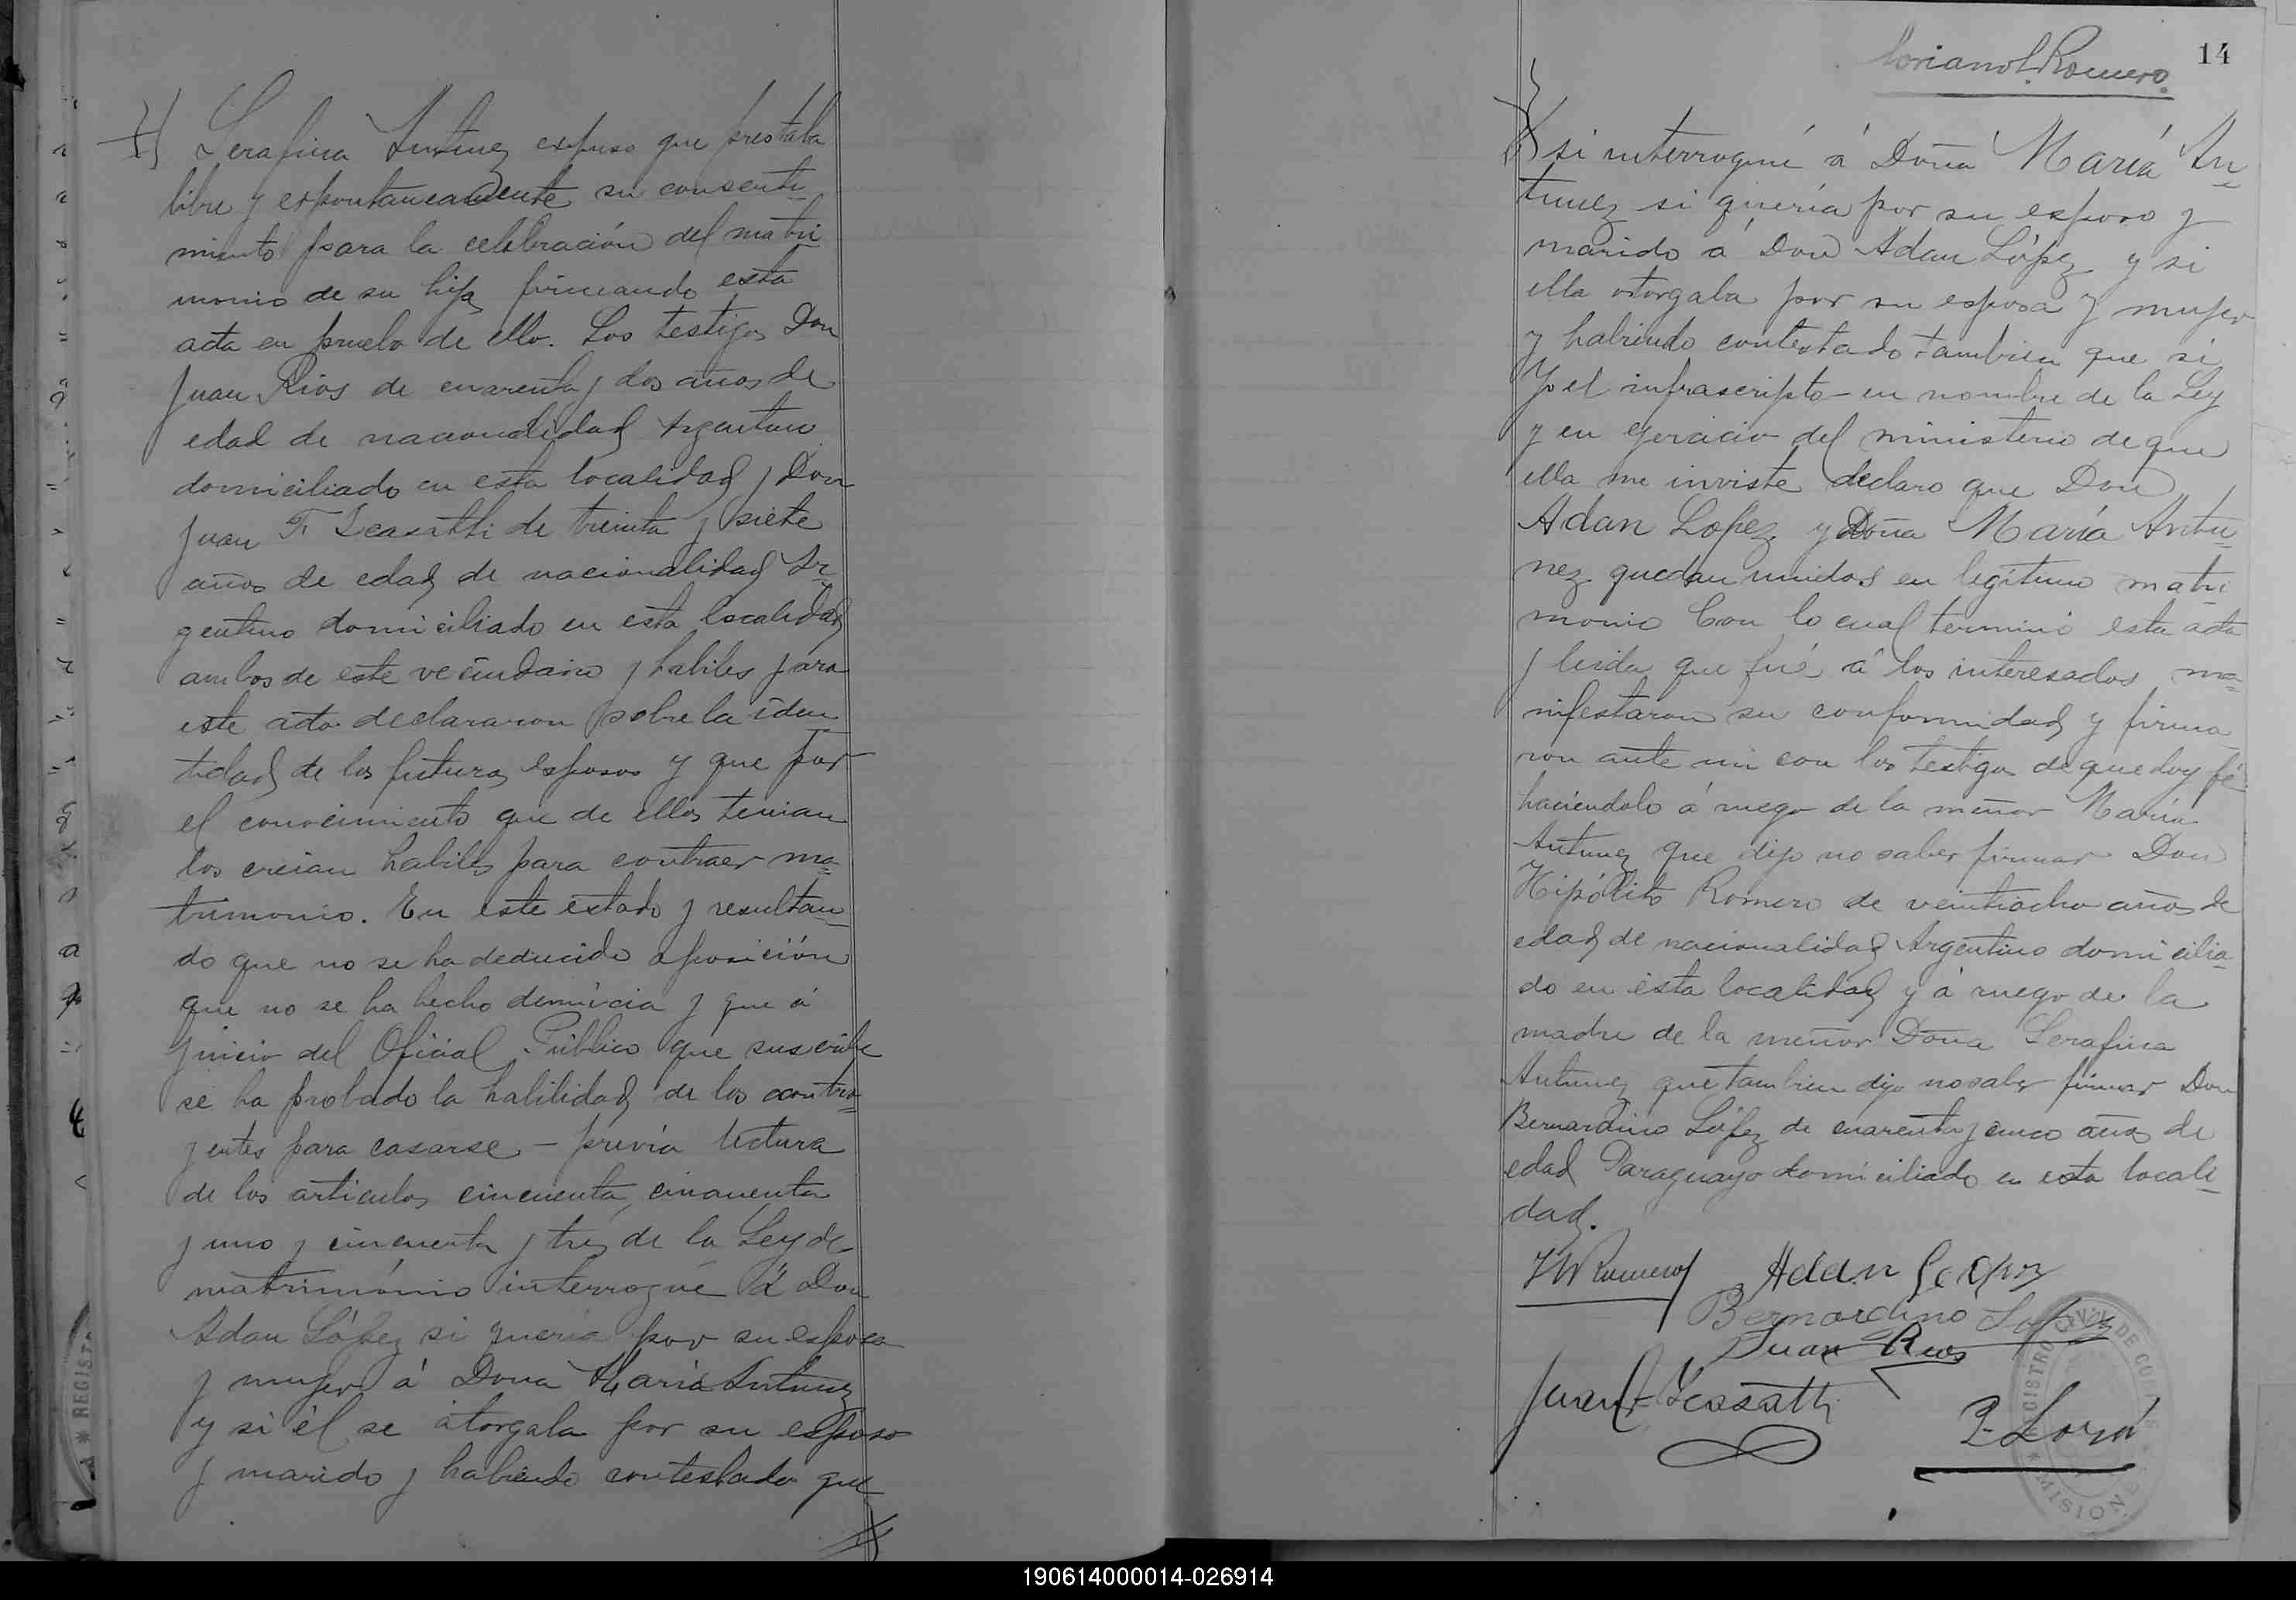 Serafina Antunez expuso que prestaba
libre y espontaneamente su consenti-
miento para la celebración del matri-
monio de su hija firmando esta
acta en prueba de ello. Los testigos Don
Juan Rios de cuarenta y dos años de
edad de nacionalidad Argentino
domiciliado en esta localidad y Don
Juan F. de treinta y siete
años de edad de nacionalidad Ar-
gentino domiciliado en esta localidad
ambos de este vecindario y habiles para
este acto declararon sobre la iden-
tidad de los futuros esposos y que por
el conocimiento que de ellos tenian
los creian habiles para contraer ma-
trimonio. En este estado y resultan-
do que no se ha deducido oposición
que no se ha hecho denúncia y que á
juicio del Oficial Público que suscribe
se ha probado la habilidad de los contra-
yentes para casarse – prévia lectura
de los articulos cincuenta, cincuenta
y uno y cincuenta y tres de la Ley de
matrimónio interrogué á Don
Adan López si queria por su esposa
y mujer á Doña María Antunez
y si él se otorgaba por su esposo
y marido y habiendo contestado que
14
Romero.
si interrogué á Doña María An-
tunez si quería por su esposo y
marido á Don Adan López y si
ella otorgaba por su esposa y mujer
y habiendo contestado tambien que si
Yo el infrascripto en nombre de la Ley
y en ejercicio del ministerio de que
ella me inviste declaro que Don
Adan Lopez y Doña María Antu-
nez quedan unidos en legítimo matri-
monio Con lo cual terminó esta acta
y leida que fué á los interesados ma-
nifestaron su conformidad y firma-
ron ante mi con los testigos de que doy fé
haciendolo á ruego de la menor María
Antunez que dijo no saber firmar Don
Hipólito Romero de veintiocho años de
edad de nacionalidad Argentino domicilia-
do en esta localidad y á ruego de la
madre de la menor Doña Serafina
Antunez que tambien dijo no saber firmar Don
Bernardino López de cuarenta y cinco años de
edad Paraguayo domiciliado en esta locali-
dad.
H Romero
Adan Lopez
Bernardino Lopez
Juan Rios
Juan F
REGISTRO CIVIL DE
MISIONES
REGISTR
190614000014-026914